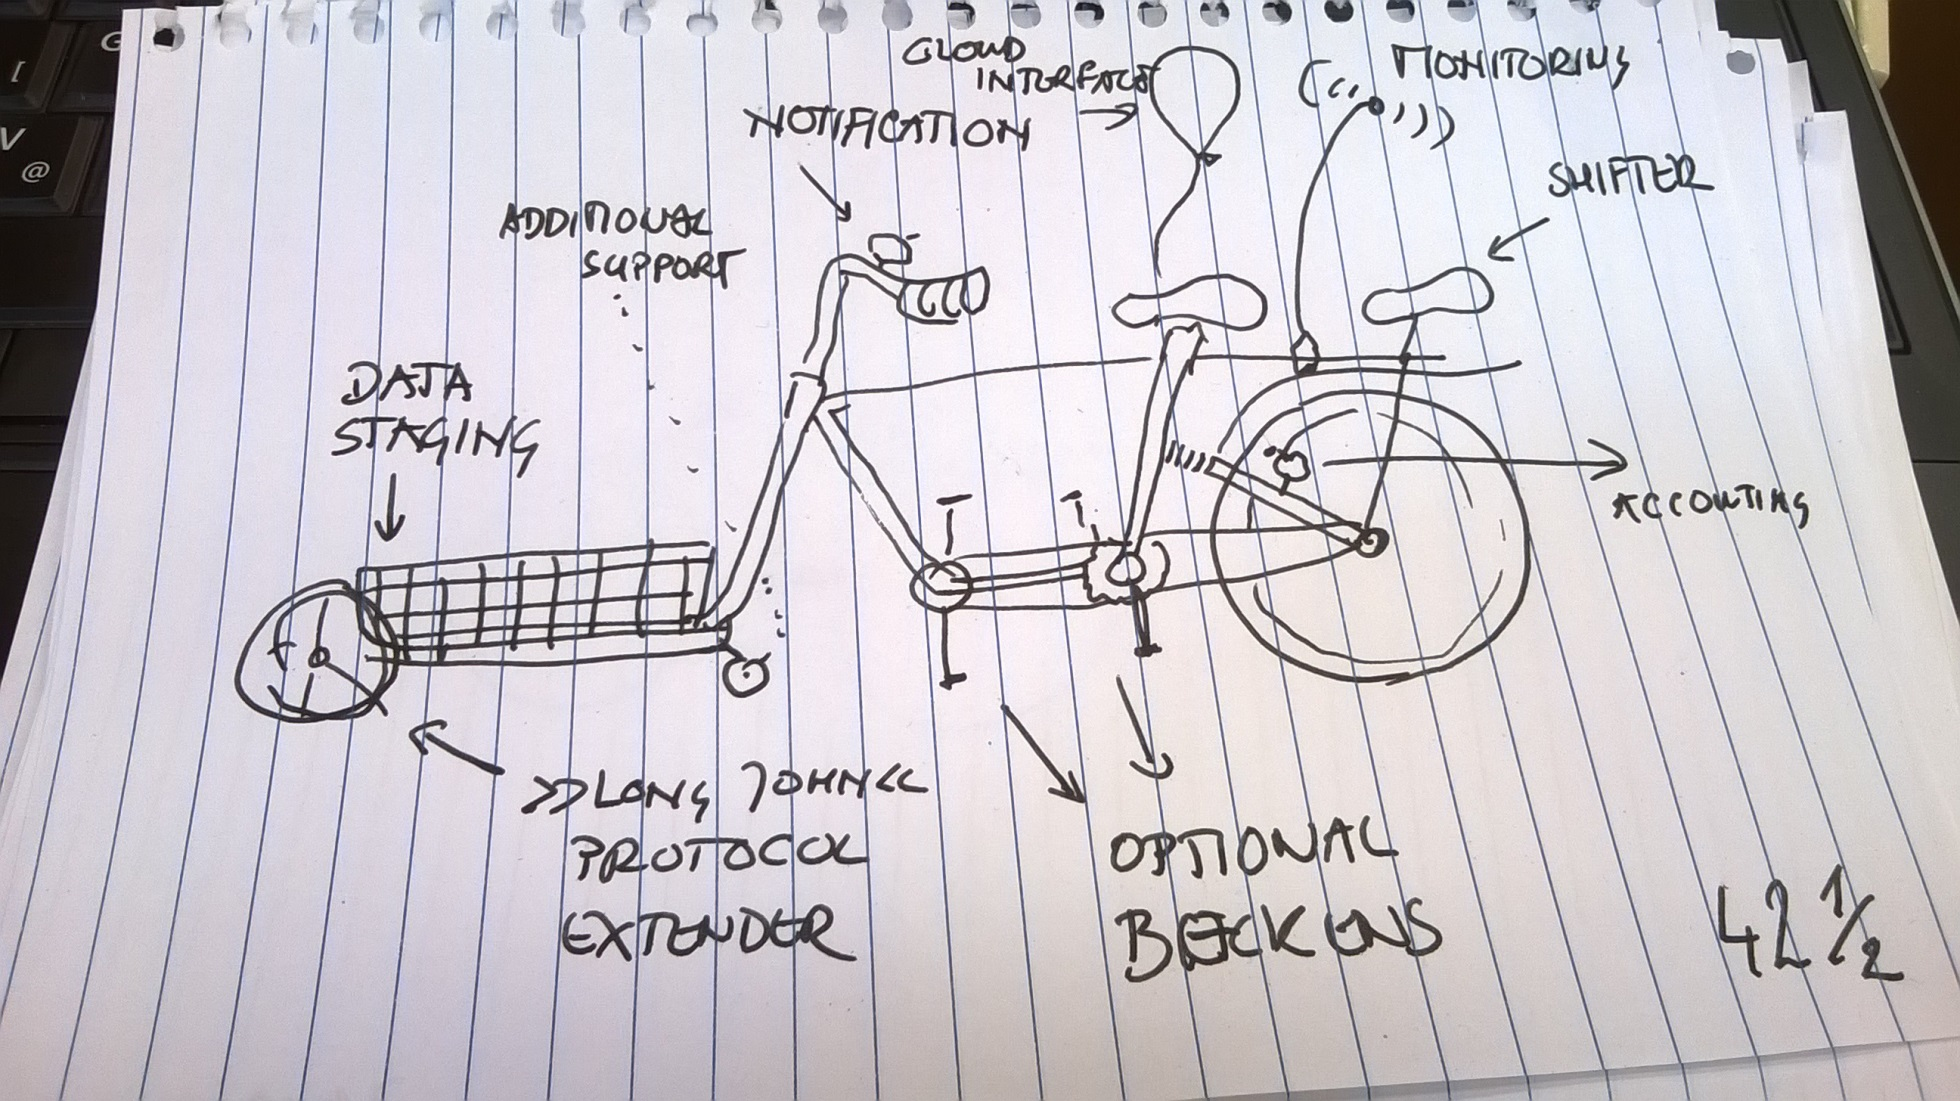 CLOUD
INTERFACE
MONITORING
NOTIFICATION
SHIFTER
ADDITIONAL
SUPPORT
DATA
STAGING
ACCOUTING
>>LONG JOHN<<
PROTOCOL
EXTENDER
OPTIONAL
BECKENS
42 1/2
G
[
V
@